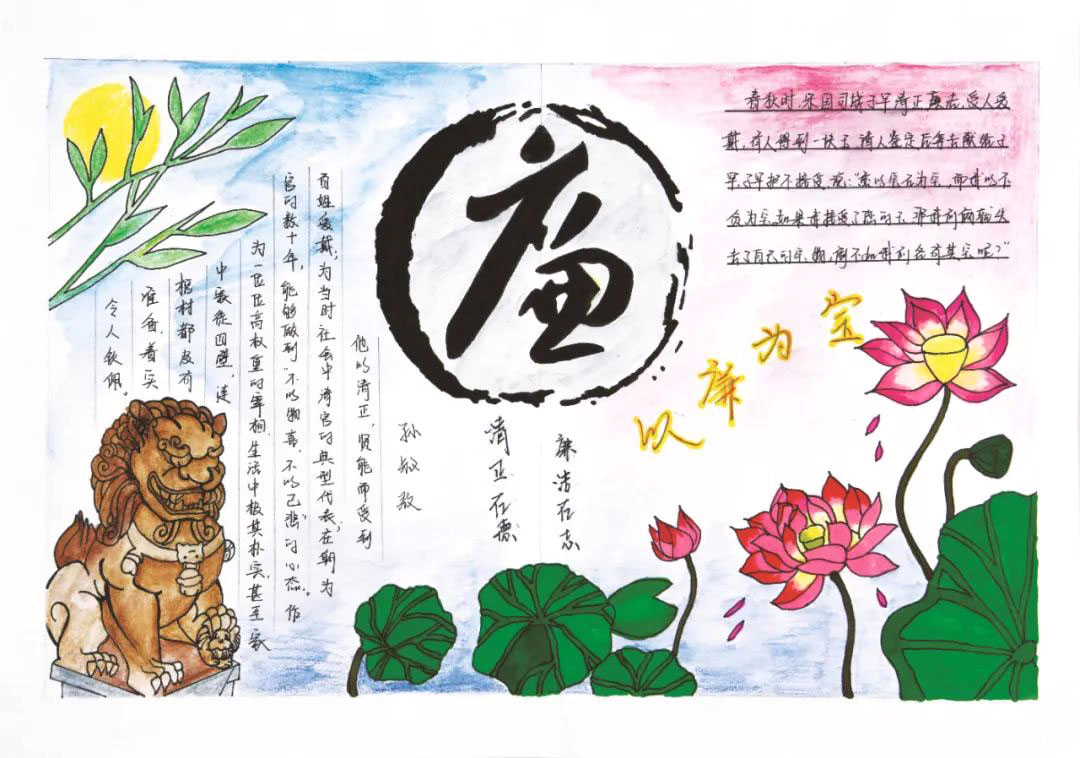 廉
春秋时,宋国司城子罕清正廉洁,受人爱
戴。有人得到一块玉,请人鉴定后拿去献给子
罕,子罕拒不接受,说:“您以宝石为宝,而我以不
贪为宝。如果我接受了您的玉,那我们俩都失
去了自己的宝物,倒不如我们各有其宝呢?”
以廉为宝
廉洁在志
清正在德
孙叔敖
他以清正,贤能而受到
百姓爱戴,为当时社会中清官的典型代表,在朝为
官的数十年,能够做到“不以物喜,不以己悲”的心态。作
为一位位高权重的宰相,生活中极其朴实,甚至家
中家徒四壁,连
棺材都没有
准备,着实
令人钦佩。